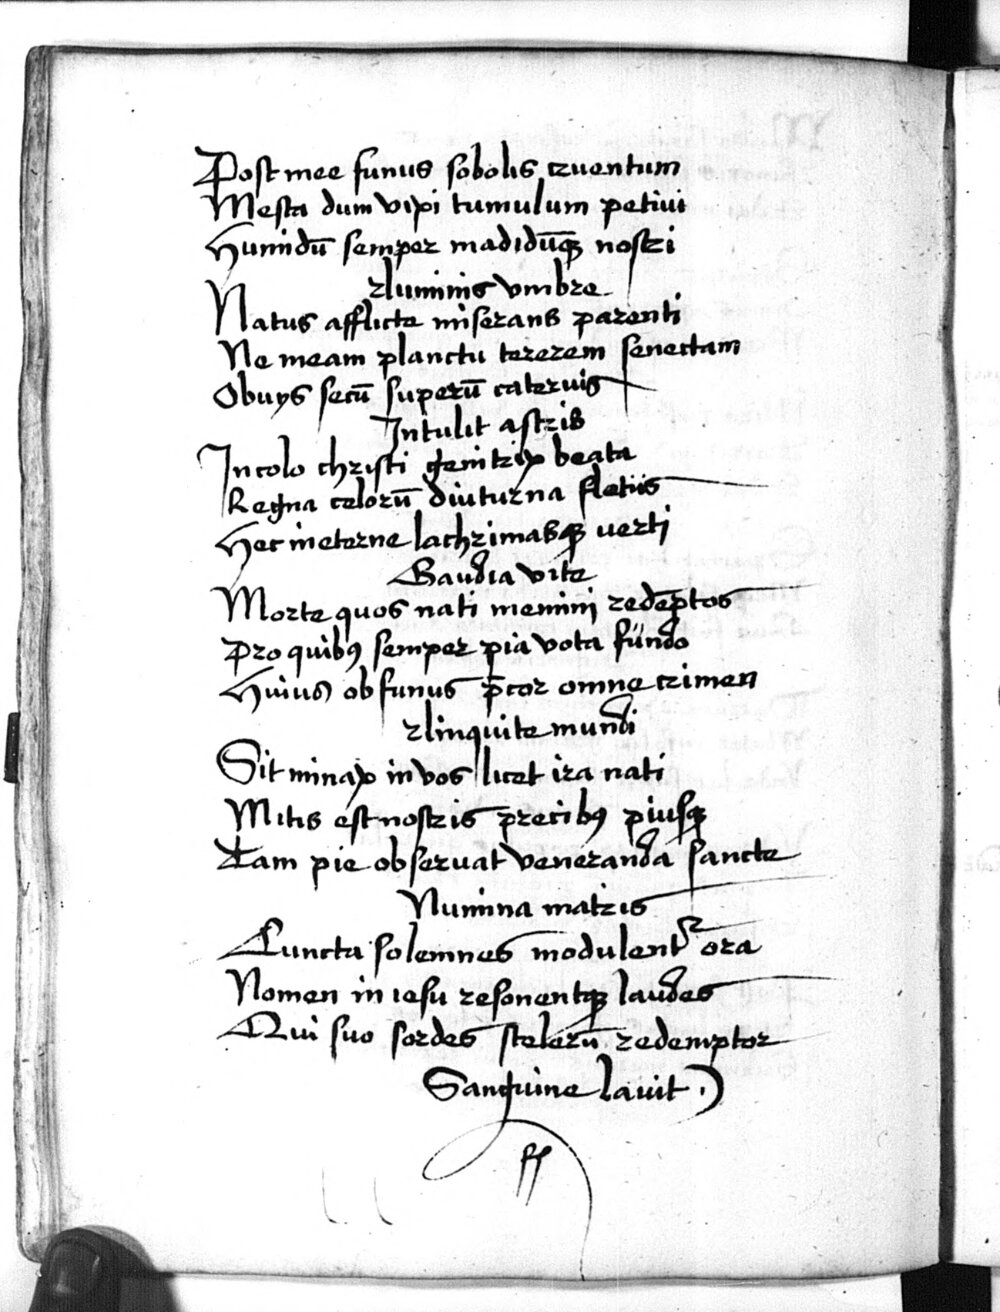 Post mee funus sobolis cruentum
Mesta dum vixi tumulum petivi
Humidū semper madidūqꝫ nostri
rluminis vmbre
Natus afflicte miserans parenti
Ne meam planctu tererem senectam
Obuys secū superū cateruis
Intulit astris
In colo christi genitrix beata
Regna celorū diuturna fletus
Hec in eterne lachrimasqꝫ uerti
Gaudia vite
Morte quos nati memini redēptos
Pro quibꝰ semper pia vota fundo
Huius ob funus p̄cor omne crimen
rlinquite mundi
Sit minax in vos licet ira nati
Mitis est nostris precibꝰ piusqꝫ
Tam pie obseruat veneranda sancte
Numina matris
Cuncta solemnes modulent᷑ ora
Nomen in iesu resonentqꝫ laudes
Qui suo sordes scelerū redemptor
Sanguine lauit